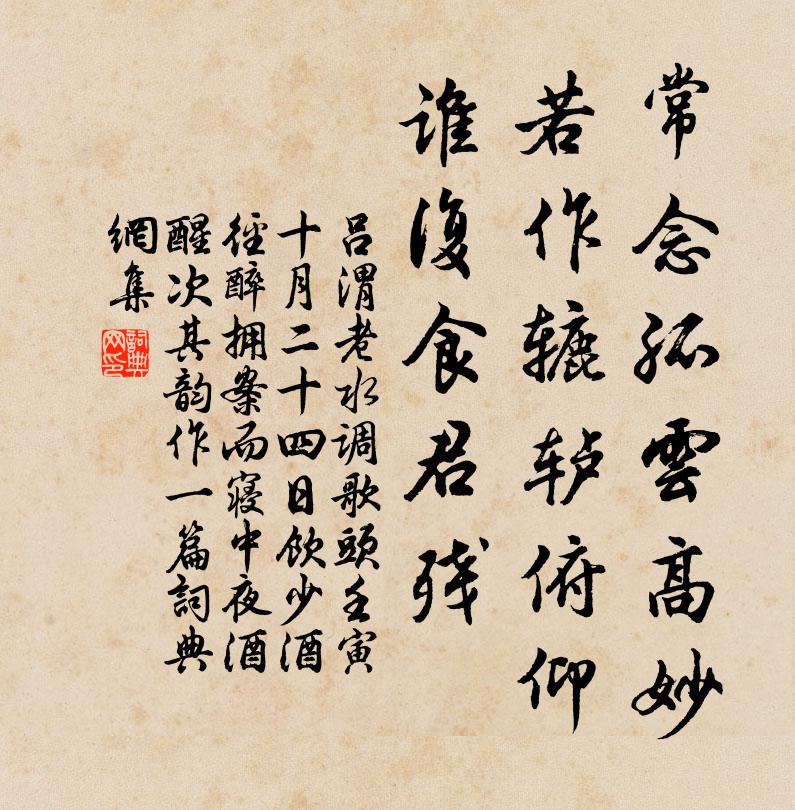 常念孤雲高妙
若作辘轳俯仰
谁復食君残
吕渭老水调歌頭壬寅
十月二十四日飲少酒
徑醉拥案而寝中夜酒
醒次其韵作一篇詞典
網集
詞典网印